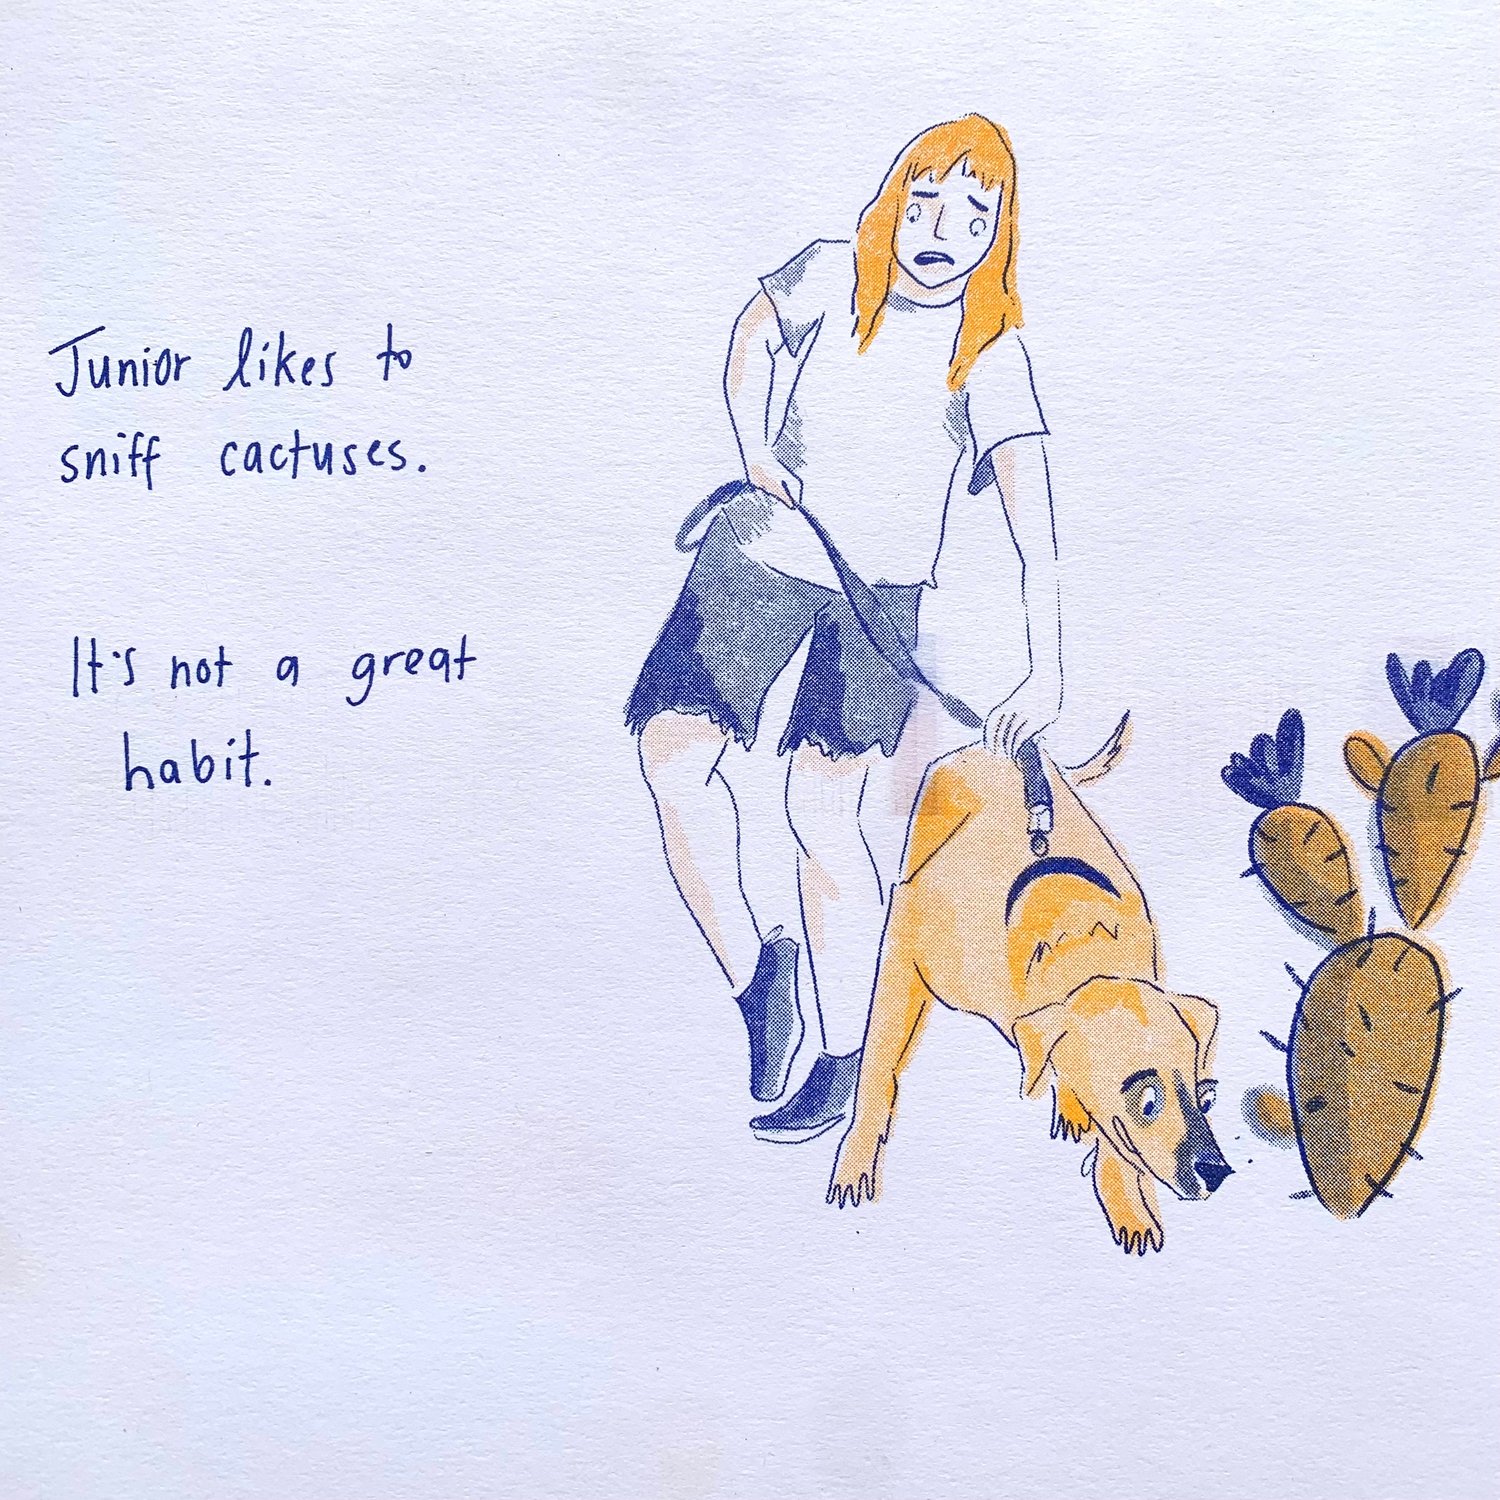 Junior likes to
sniff cactuses.
It's not a great
habit.